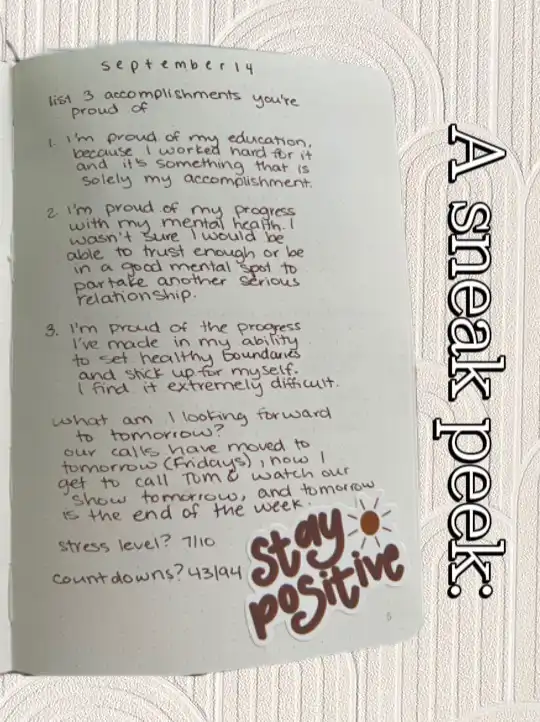 september 14
list 3 accomplishments you're
proud of
1. I'm proud of my education,
because I worked hard for it
and it's something that is
solely my accomplishment.
2. I'm proud of my progress
with my mental health. I
wasn't sure I would be
able to trust enough or be
in a good mental spot to
partake another serious
relationship.
3. I'm proud of the progress
I've made in my ability
to set healthy boundaries
and stick up for myself.
I find it extremely difficult.
what am I looking forward
to tomorrow?
our calls have moved to
tomorrow (Fridays), now I
get to call Tom & watch our
show tomorrow, and tomorrow
is the end of the week.
stress level? 7/10
countdowns? 43/94
stay
positive
5
A sneak peek: